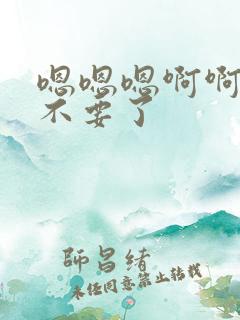 嗯嗯嗯啊啊
不要了
师昌绪
未经同意禁止转载